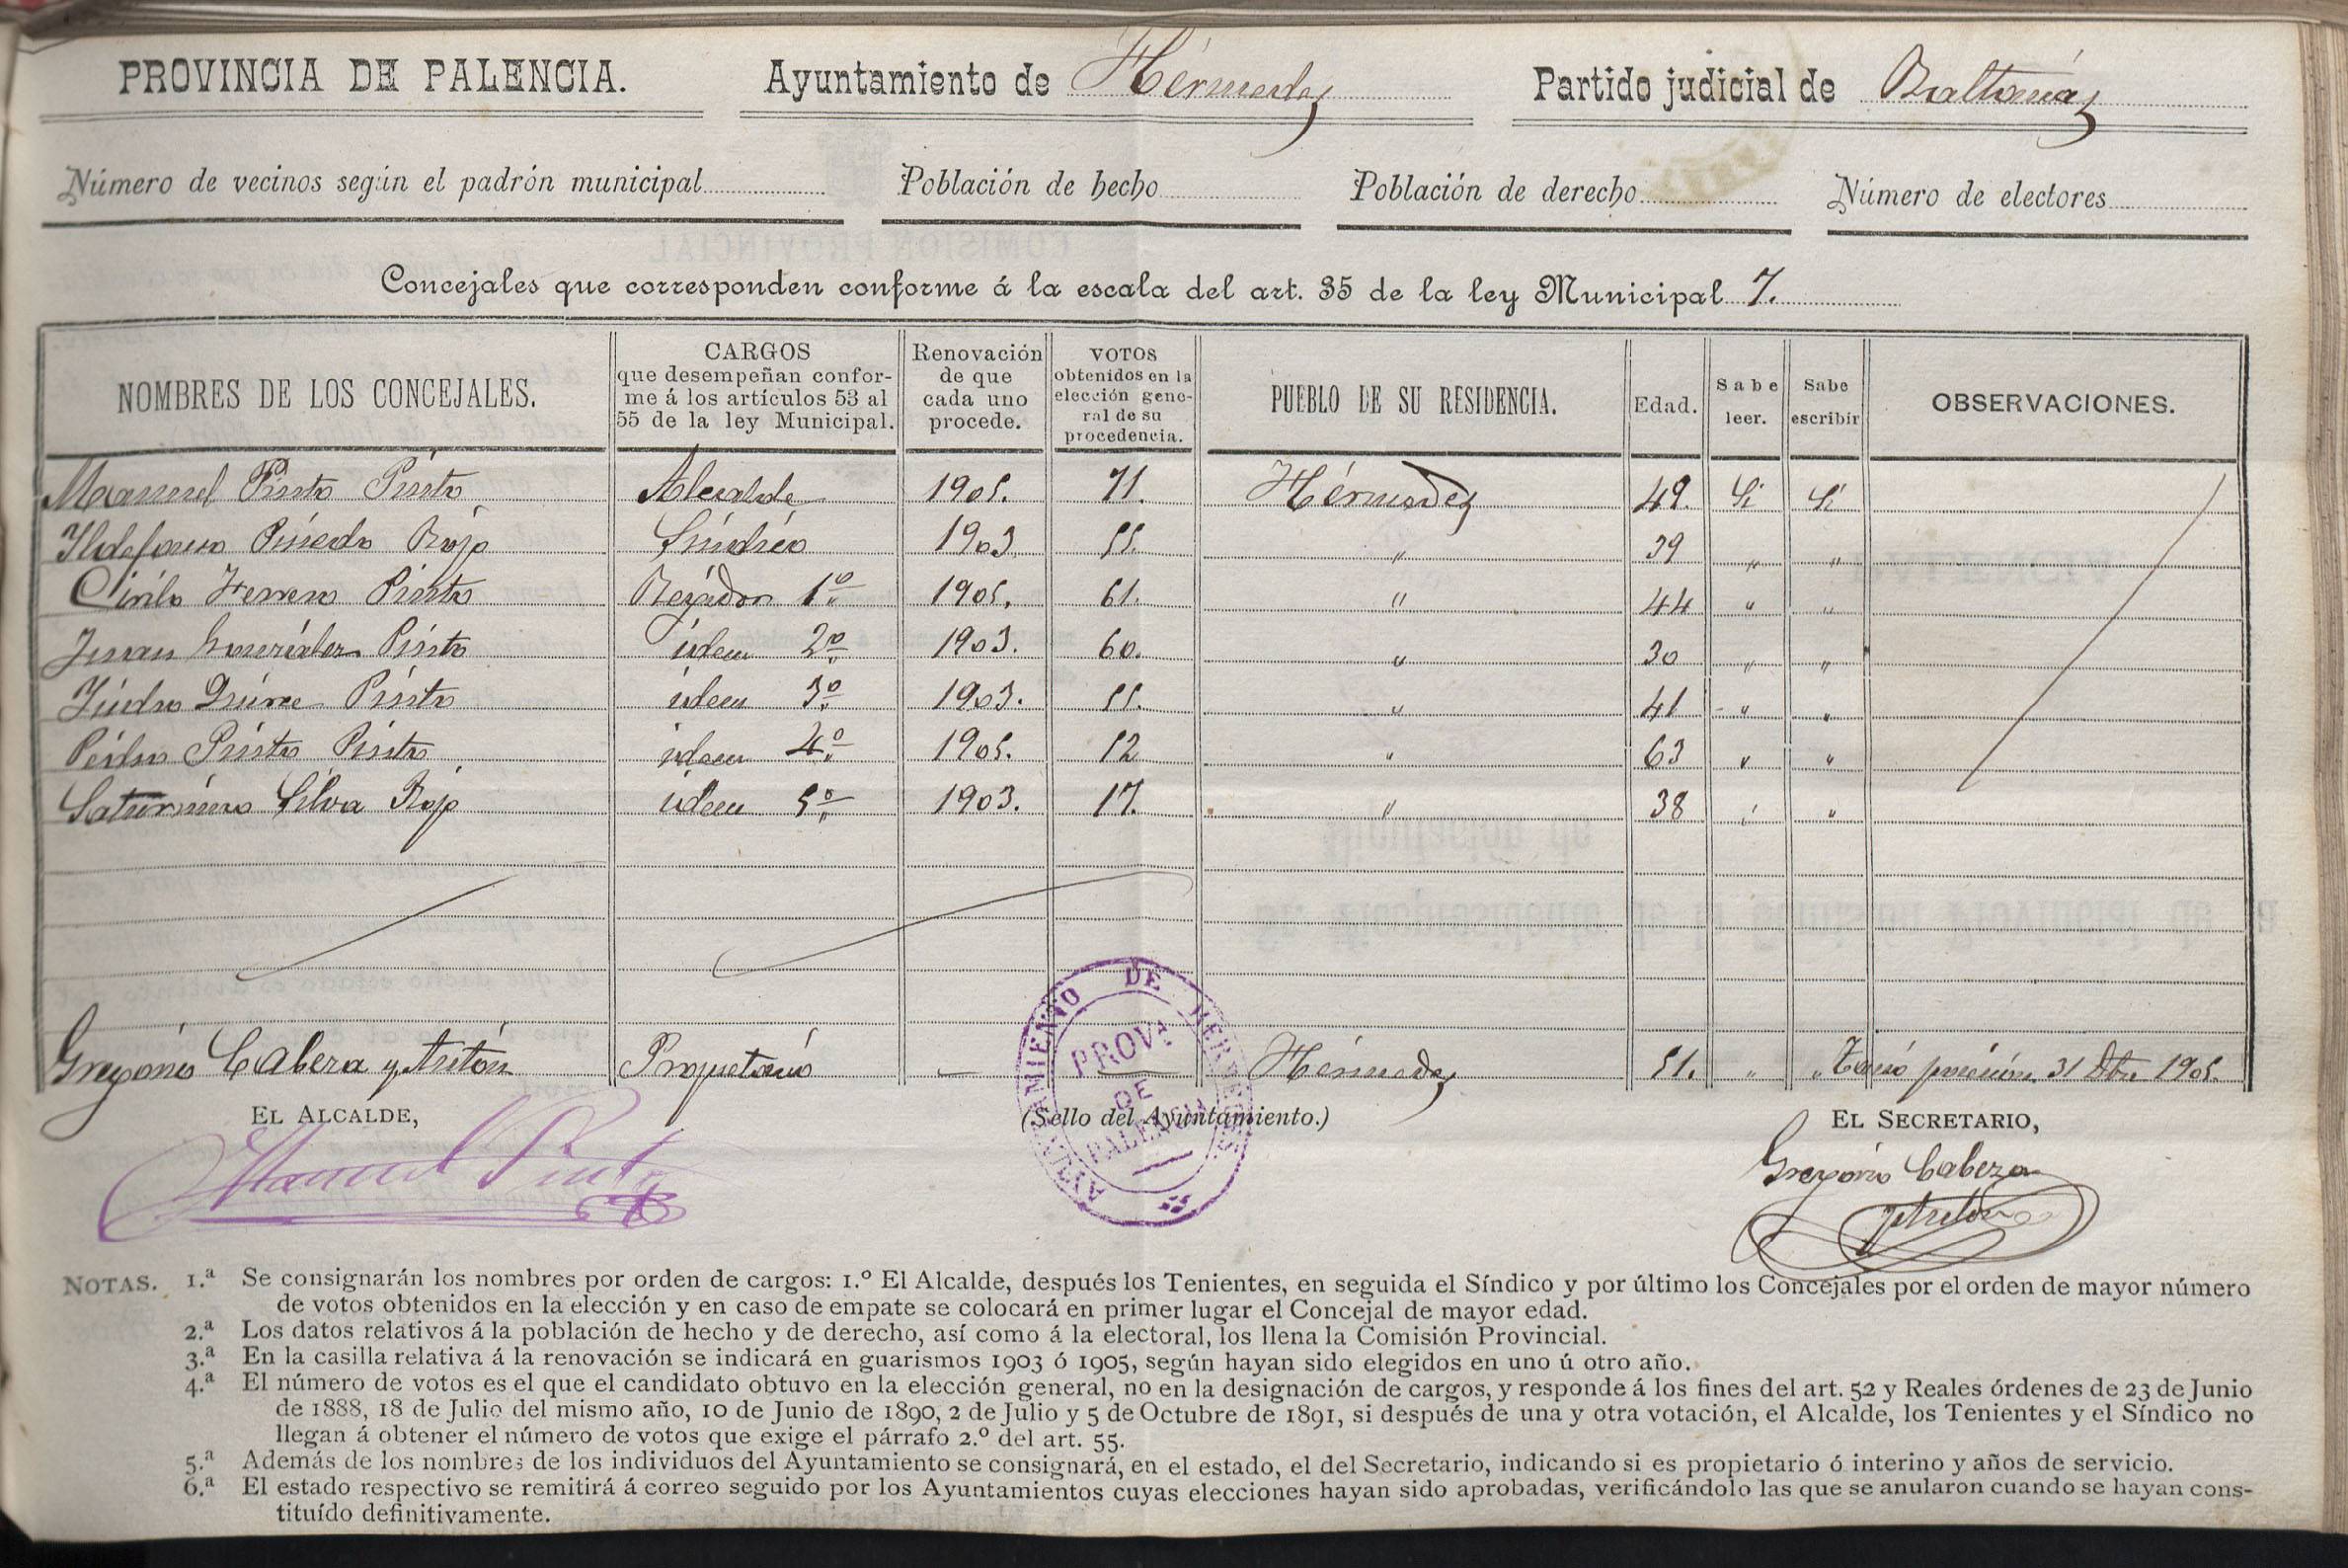 PROVINCIA DE PALENCIA. Ayuntamiento de Hérmedes Partido judicial de Baltanás
Número de vecinos según el padrón municipal Población de hecho Población de derecho Número de electores
Concejales que corresponden conforme á la escala del art. 35 de la ley Municipal 7.
NOMBRES DE LOS CONCEJALES. CARGOS que desempeñan confor- me á los artículos 53 al 55 de la ley Municipal. Renovación de que cada uno procede. VOTOS obtenidos en la elección gene- ral de su procedencia. PUEBLO DE SU RESIDENCIA. Edad. Sabe leer. Sabe escribir OBSERVACIONES.
Manuel Pinto Pinto Alcalde 1905. 71. Hérmedes 49. Si Si
Ildefonso Pinedo Rojo Síndico 1903. 55. " 39 " "
Cirilo Herrero Pinto Regidor 1º 1905. 61. " 44 " "
Juan González Pinto idem 2º 1903. 60. " 30 " "
Isidro Pinto idem 3º 1903. 55. " 41 " "
Pedro Pinto Pinto idem 4º 1905. 52 " 63 " "
Saturnino Silva Rojo idem 5º 1903. 17. " 38 " "
Gregorio Cabeza y Antón Propietario — Hérmedes 51. " " Tomó posesión 31 Dbre 1905.
EL ALCALDE, (Sello del Ayuntamiento.) EL SECRETARIO,
Manuel Pinto
AYUNTAMIENTO DE HERMEDES
PROVA
DE
PALENCIA
Gregorio Cabeza
y Antón
NOTAS. 1.ª Se consignarán los nombres por orden de cargos: 1.º El Alcalde, después los Tenientes, en seguida el Síndico y por último los Concejales por el orden de mayor número
de votos obtenidos en la elección y en caso de empate se colocará en primer lugar el Concejal de mayor edad.
2.ª Los datos relativos á la población de hecho y de derecho, así como á la electoral, los llena la Comisión Provincial.
3.ª En la casilla relativa á la renovación se indicará en guarismos 1903 ó 1905, según hayan sido elegidos en uno ú otro año.
4.ª El número de votos es el que el candidato obtuvo en la elección general, no en la designación de cargos, y responde á los fines del art. 52 y Reales órdenes de 23 de Junio
de 1888, 18 de Julio del mismo año, 10 de Junio de 1890, 2 de Julio y 5 de Octubre de 1891, si después de una y otra votación, el Alcalde, los Tenientes y el Síndico no
llegan á obtener el número de votos que exige el párrafo 2.º del art. 55.
5.ª Además de los nombres de los individuos del Ayuntamiento se consignará, en el estado, el del Secretario, indicando si es propietario ó interino y años de servicio.
6.ª El estado respectivo se remitirá á correo seguido por los Ayuntamientos cuyas elecciones hayan sido aprobadas, verificándolo las que se anularon cuando se hayan cons-
tituído definitivamente.